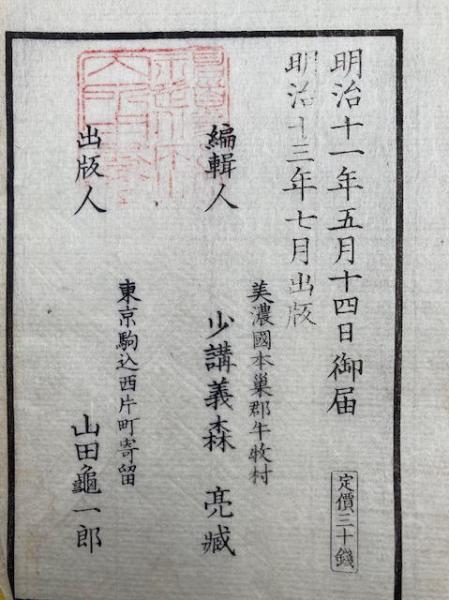 明治十一年五月十四日御届
明治十三年七月出版
定價三十錢
編輯人
美濃國本巢郡牛牧村
少講義森 亮臧
出版人
東京駒込西片町寄留
山田龜一郎